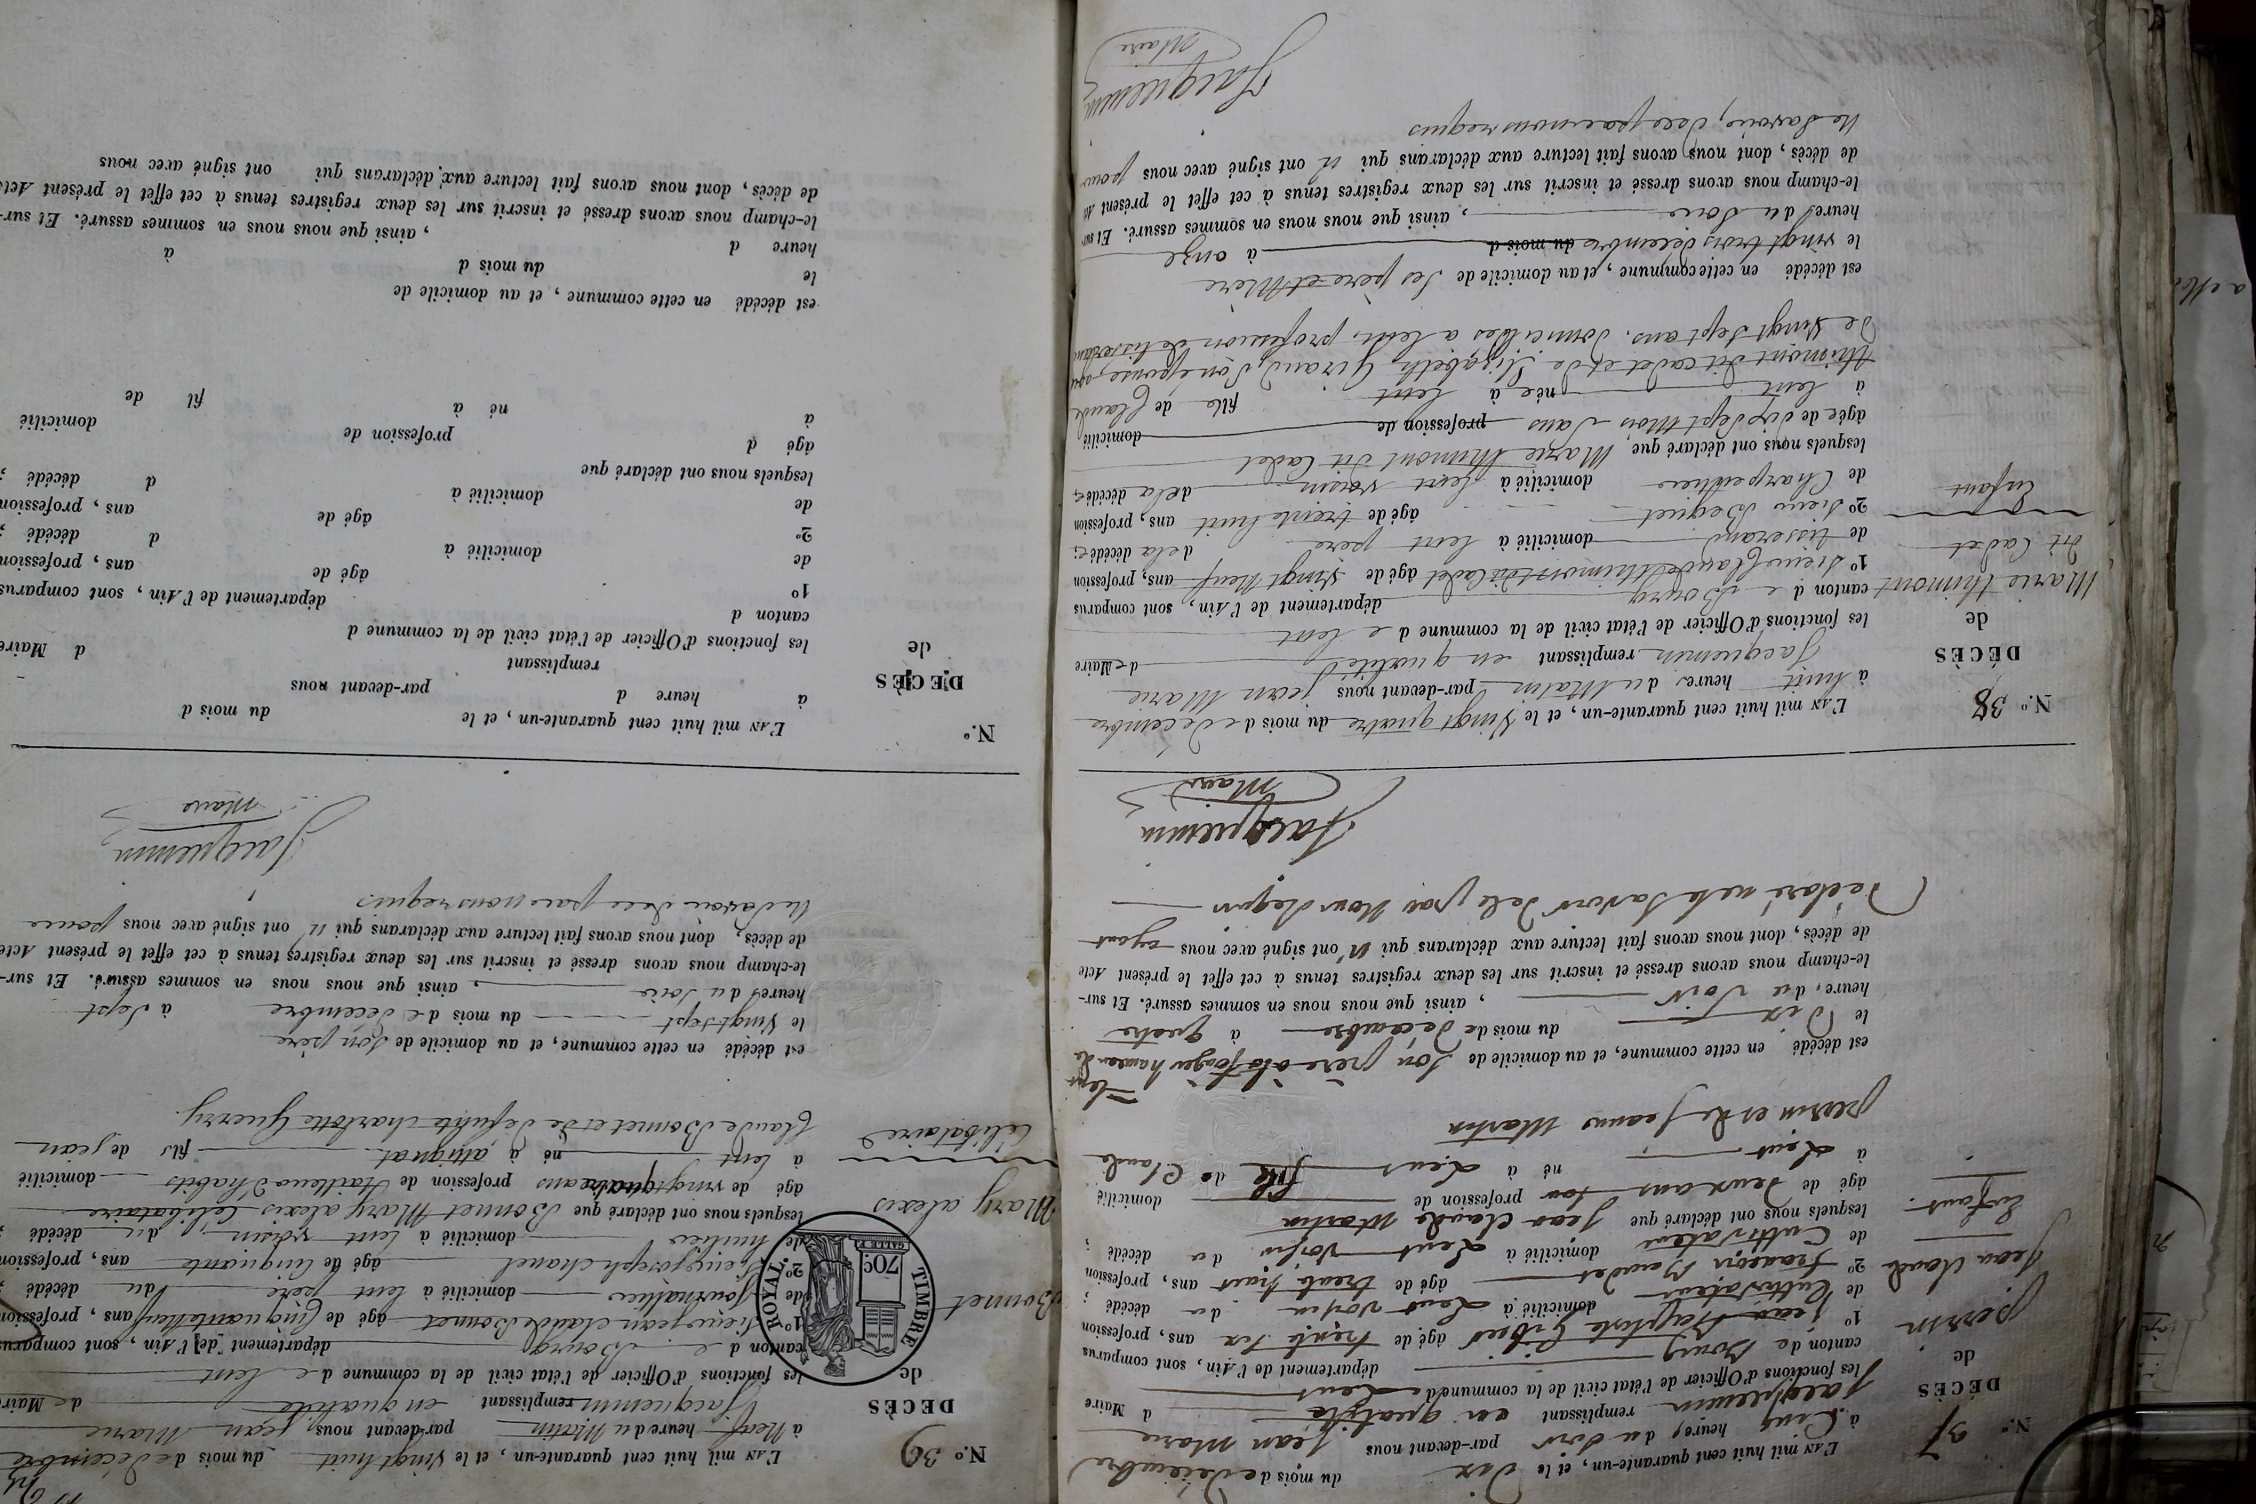 N.º 37
DÉCÈS
de
perrin
Jean Claude
Enfant
L'AN mil huit cent quarante-un, et le Dix du mois de décembre
à Cinq heures du soir par-devant nous Jean Marie
Jacquemin remplissant en qualité d Maire
les fonctions d'Officier de l'état civil de la commune de Lent
canton de Bourg département de l'Ain, sont comparus
1º Jean Baptiste âgé de trente six ans, profession
de Cultivateur domicilié à Lent voisin du décédé ;
2º françois âgé de trente ans, profession
de Cultivateur domicilié à Lent voisin du décédé ;
lesquels nous ont déclaré que Jean Claude
âgé de deux ans profession de domicilié
à Lent né à Lent fils de Claude
perrin et de Jeanne Martin
est décédé en cette commune, et au domicile de son père
le Dix du mois de décembre à quatre
heure, du soir, ainsi que nous nous en sommes assuré. Et sur-
le-champ nous avons dressé et inscrit sur les deux registres tenus à cet effet le présent Acte
de décès, dont nous avons fait lecture aux déclarans qui n'ont signé avec nous ayant
Déclaré ne le savoir de ce par Nous Requis
Jacquemin
Maire
N.º 38
DÉCÈS
de
Marie thimont
dit Cadet
Enfant
L'AN mil huit cent quarante-un, et le Vingt quatre du mois de décembre
à huit heures du Matin par-devant nous jean Marie
Jacquemin remplissant en qualité de Maire
les fonctions d'Officier de l'état civil de la commune de lent
canton de Bourg département de l'Ain, sont comparus
1º Sieur Claude thimont dit Cadet âgé de Vingt Neuf ans, profession
de tisserand domicilié à lent père de la décédée ;
2º Sieur Boquet âgé de trente huit ans, profession
de Charpentier domicilié à lent voisin de la décédée ;
lesquels nous ont déclaré que Marie thimont dit Cadet
âgée de dix sept Mois sans profession de domicilié
à lent née à lent fille de Claude
thimont dit cadet et de Elizabeth Giraud, son épouse, agée
de vingt sept ans, domiciliés a lent, profession de tisserand
est décédé en cette commune, et au domicile de ses père et Mère
le vingt trois décembre du mois d à onze
heures du Soir, ainsi que nous nous en sommes assuré. Et sur-
le-champ nous avons dressé et inscrit sur les deux registres tenus à cet effet le présent Acte
de décès, dont nous avons fait lecture aux déclarans qui n ont signé avec nous pour
ne savoir, de ce par nous requis
Jacquemin
Maire
N.º 39
DÉCÈS
de
Bonnet
Mary alexis
Célibataire
TIMBRE ROYAL
70c
L'AN mil huit cent quarante-un, et le Vingt huit du mois de décembre
à Neuf heure du Matin par-devant nous jean Marie
Jacquemin remplissant en qualité de Maire
les fonctions d'Officier de l'état civil de la commune de lent
canton de Bourg département de l'Ain, sont comparus
1º Sieur jean claude Bonnet âgé de Cinquante Neuf ans, profession
de journalier domicilié à lent père du décédé ;
2º Sieur joseph chanel âgé de Cinquante ans, profession
de huilier domicilié à lent voisin du décédé ;
lesquels nous ont déclaré que Bonnet Mary alexis Célibataire
âgé de vingt quatre ans profession de tailleur d'habits domicilié
à lent né à attignat fils de jean
Claude Bonnet et de défunte charlotte Guerry.
est décédé en cette commune, et au domicile de son père
le Vingt sept du mois de décembre à Sept
heures du Soir, ainsi que nous nous en sommes assuré. Et sur-
le-champ nous avons dressé et inscrit sur les deux registres tenus à cet effet le présent Acte
de décès, dont nous avons fait lecture aux déclarans qui n' ont signé avec nous pour
ne savoir de ce par nous requis.
Jacquemin
Maire
N.º
DÉCÈS
de
L'AN mil huit cent quarante-un, et le du mois d
à heure d par-devant nous
remplissant d Maire
les fonctions d'Officier de l'état civil de la commune d
canton d département de l'Ain, sont comparus
1º âgé de ans, profession
de domicilié à d décédé ;
2º âgé de ans, profession
de domicilié à d décédé ;
lesquels nous ont déclaré que
âgé d profession de domicilié
à né à fil de
est décédé en cette commune, et au domicile de
le du mois d à
heure d , ainsi que nous nous en sommes assuré. Et sur-
le-champ nous avons dressé et inscrit sur les deux registres tenus à cet effet le présent Acte
de décès, dont nous avons fait lecture aux déclarans qui ont signé avec nous